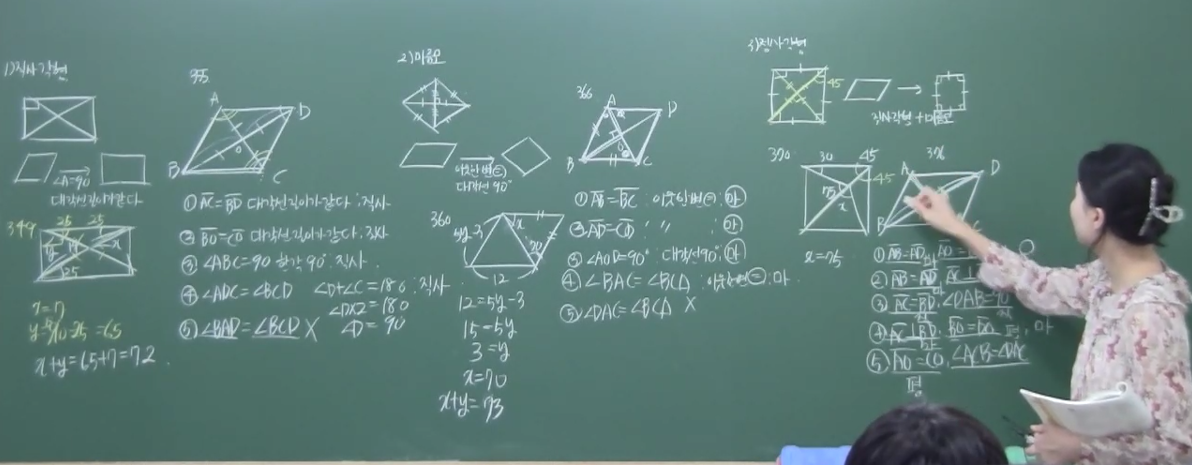 1) 직사각형
∠A=90
대각선 길이가 같다
349
25 25
y x
25
x=7
x+y=65+7=72
355
A D
O
B C
① AC=BD 대각선 길이가 같다 : 직사
② BO=CO 대각선 길이가 같다 : 직사
③ ∠ABC=90 한각 90° : 직사
④ ∠ADC=∠BCD ∠D+∠C=180 : 직사
∠D×2=180
∠D=90
⑤ ∠BAD=∠BCD X
2) 마름모
이웃한 변(=)
대각선 90°
360
5y-3
x
70
12
12=5y-3
15=5y
3=y
x=70
x+y=73
366
A D
B C
① AB=BC : 이웃한 변(=) : 마
② AD=CD 〃 〃 : 마
③ ∠AOD=90° 대각선 90° : 마
④ ∠BAC=∠BCA : 이웃변(=) : 마
⑤ ∠DAC=∠BCA X
3) 정사각형
45
직사각형+마름모
370
30 45
45
75
x
x=75
376
A D
B C
① AB=AD,
② AB=AD,
③ AC=BD, ∠DAB=90
④ AC⊥BD,
⑤ AD=CD, ∠ACB=∠DAC
평